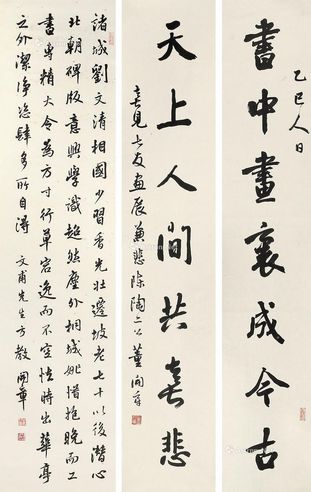 乙巳人日
書中畫裏成今古
天上人間共喜悲
喜見七友画展兼悲陈陶二公
董開章
諸城劉文清相國少習香光壯遷坡老七十以後潛心
北朝碑版意興學識超然塵外相城姚惜抱晚而工
書專精大令為方寸行草宕逸而不空怯時出華亭
之外潔净恣肆多所自得
文甫先生方教 開章